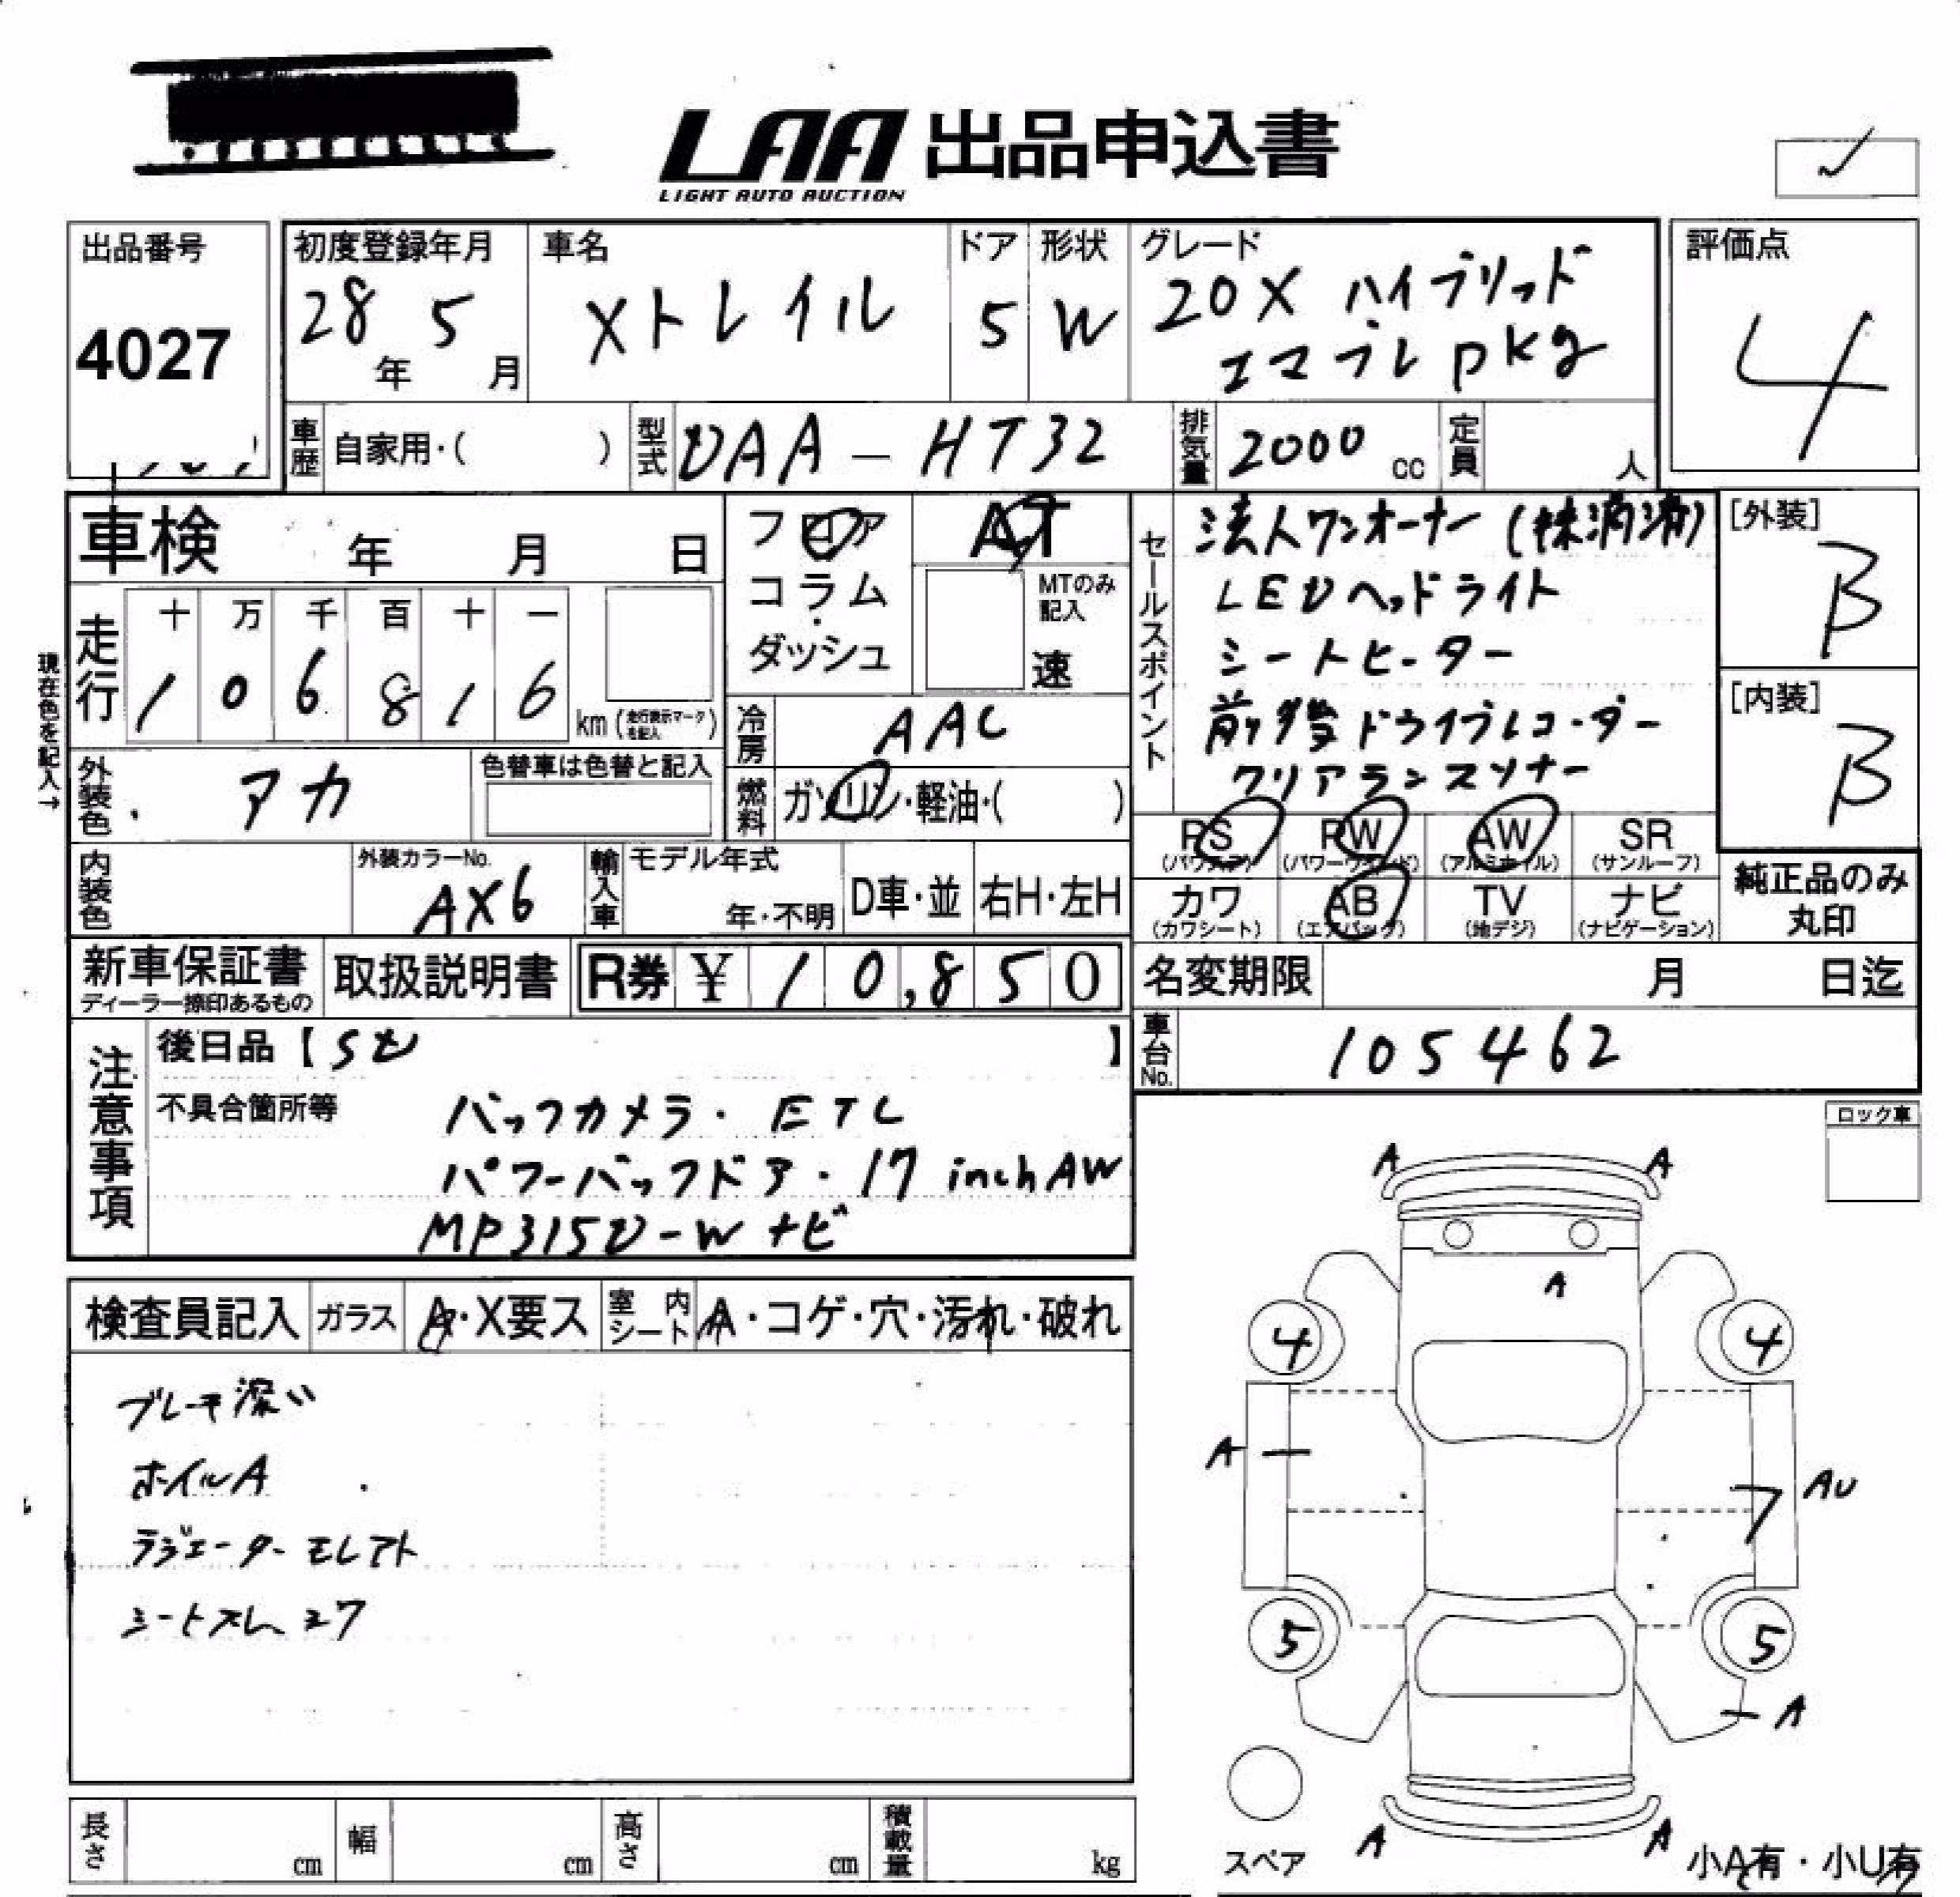 LAA 出品申込書
LIGHT AUTO AUCTION
出品番号
4027
初度登録年月
28年 5月
車名
Xトレイル
ドア
5
形状
W
グレード
20X ハイブリッド
エマブレ pkg
評価点
4
車歴 自家用・( )
型式 DAA-HT32
排気量 2000 cc
定員 人
車検 年 月 日
走行
十 万 千 百 十 一
1 0 6 8 1 6
km (走行表示マークを記入)
現在色を記入→
外装色 アカ
色替車は色替と記入
内装色
外装カラーNo.
AX6
フロア
コラム
ダッシュ
AT
MTのみ記入
速
冷房 AAC
燃料 ガソリン・軽油・( )
輸入車
モデル年式
年・不明
D車・並
右H・左H
セールスポイント
法人ワンオーナー (抹消済)
LEDヘッドライト
シートヒーター
前後ドライブレコーダー
クリアランスソナー
[外装]
B
[内装]
B
PS (パワステ)
PW (パワーウィンド)
AW (アルミホイル)
SR (サンルーフ)
カワ (カワシート)
AB (エアバック)
TV (地デジ)
ナビ (ナビゲーション)
純正品のみ
丸印
新車保証書
ディーラー捺印あるもの
取扱説明書
R券 ¥ 10,850
名変期限 月 日迄
車台No. 105462
注意事項
後日品【SD】
不具合箇所等
バックカメラ・ETC
パワーバックドア・17inchAW
MP315D-Wナビ
ロック車
検査員記入
ガラス A・X要ス
室内シート A・コゲ・穴・汚れ・破れ
ブレーキ深い
ホイルA
ラジエーターモレアト
シートスレ
A A
A
4 4
A AU
5 5
A
A A
スペア
小A有・小U有
長さ cm
幅 cm
高さ cm
積載量 kg